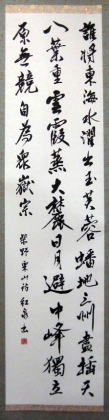 誰將東海水濯出玉芙蓉蟠地三州盡插天
八葉重雲霞蒸大麓日月避中峰獨立
原無競自為眾嶽宗 柴野栗山詩 紅